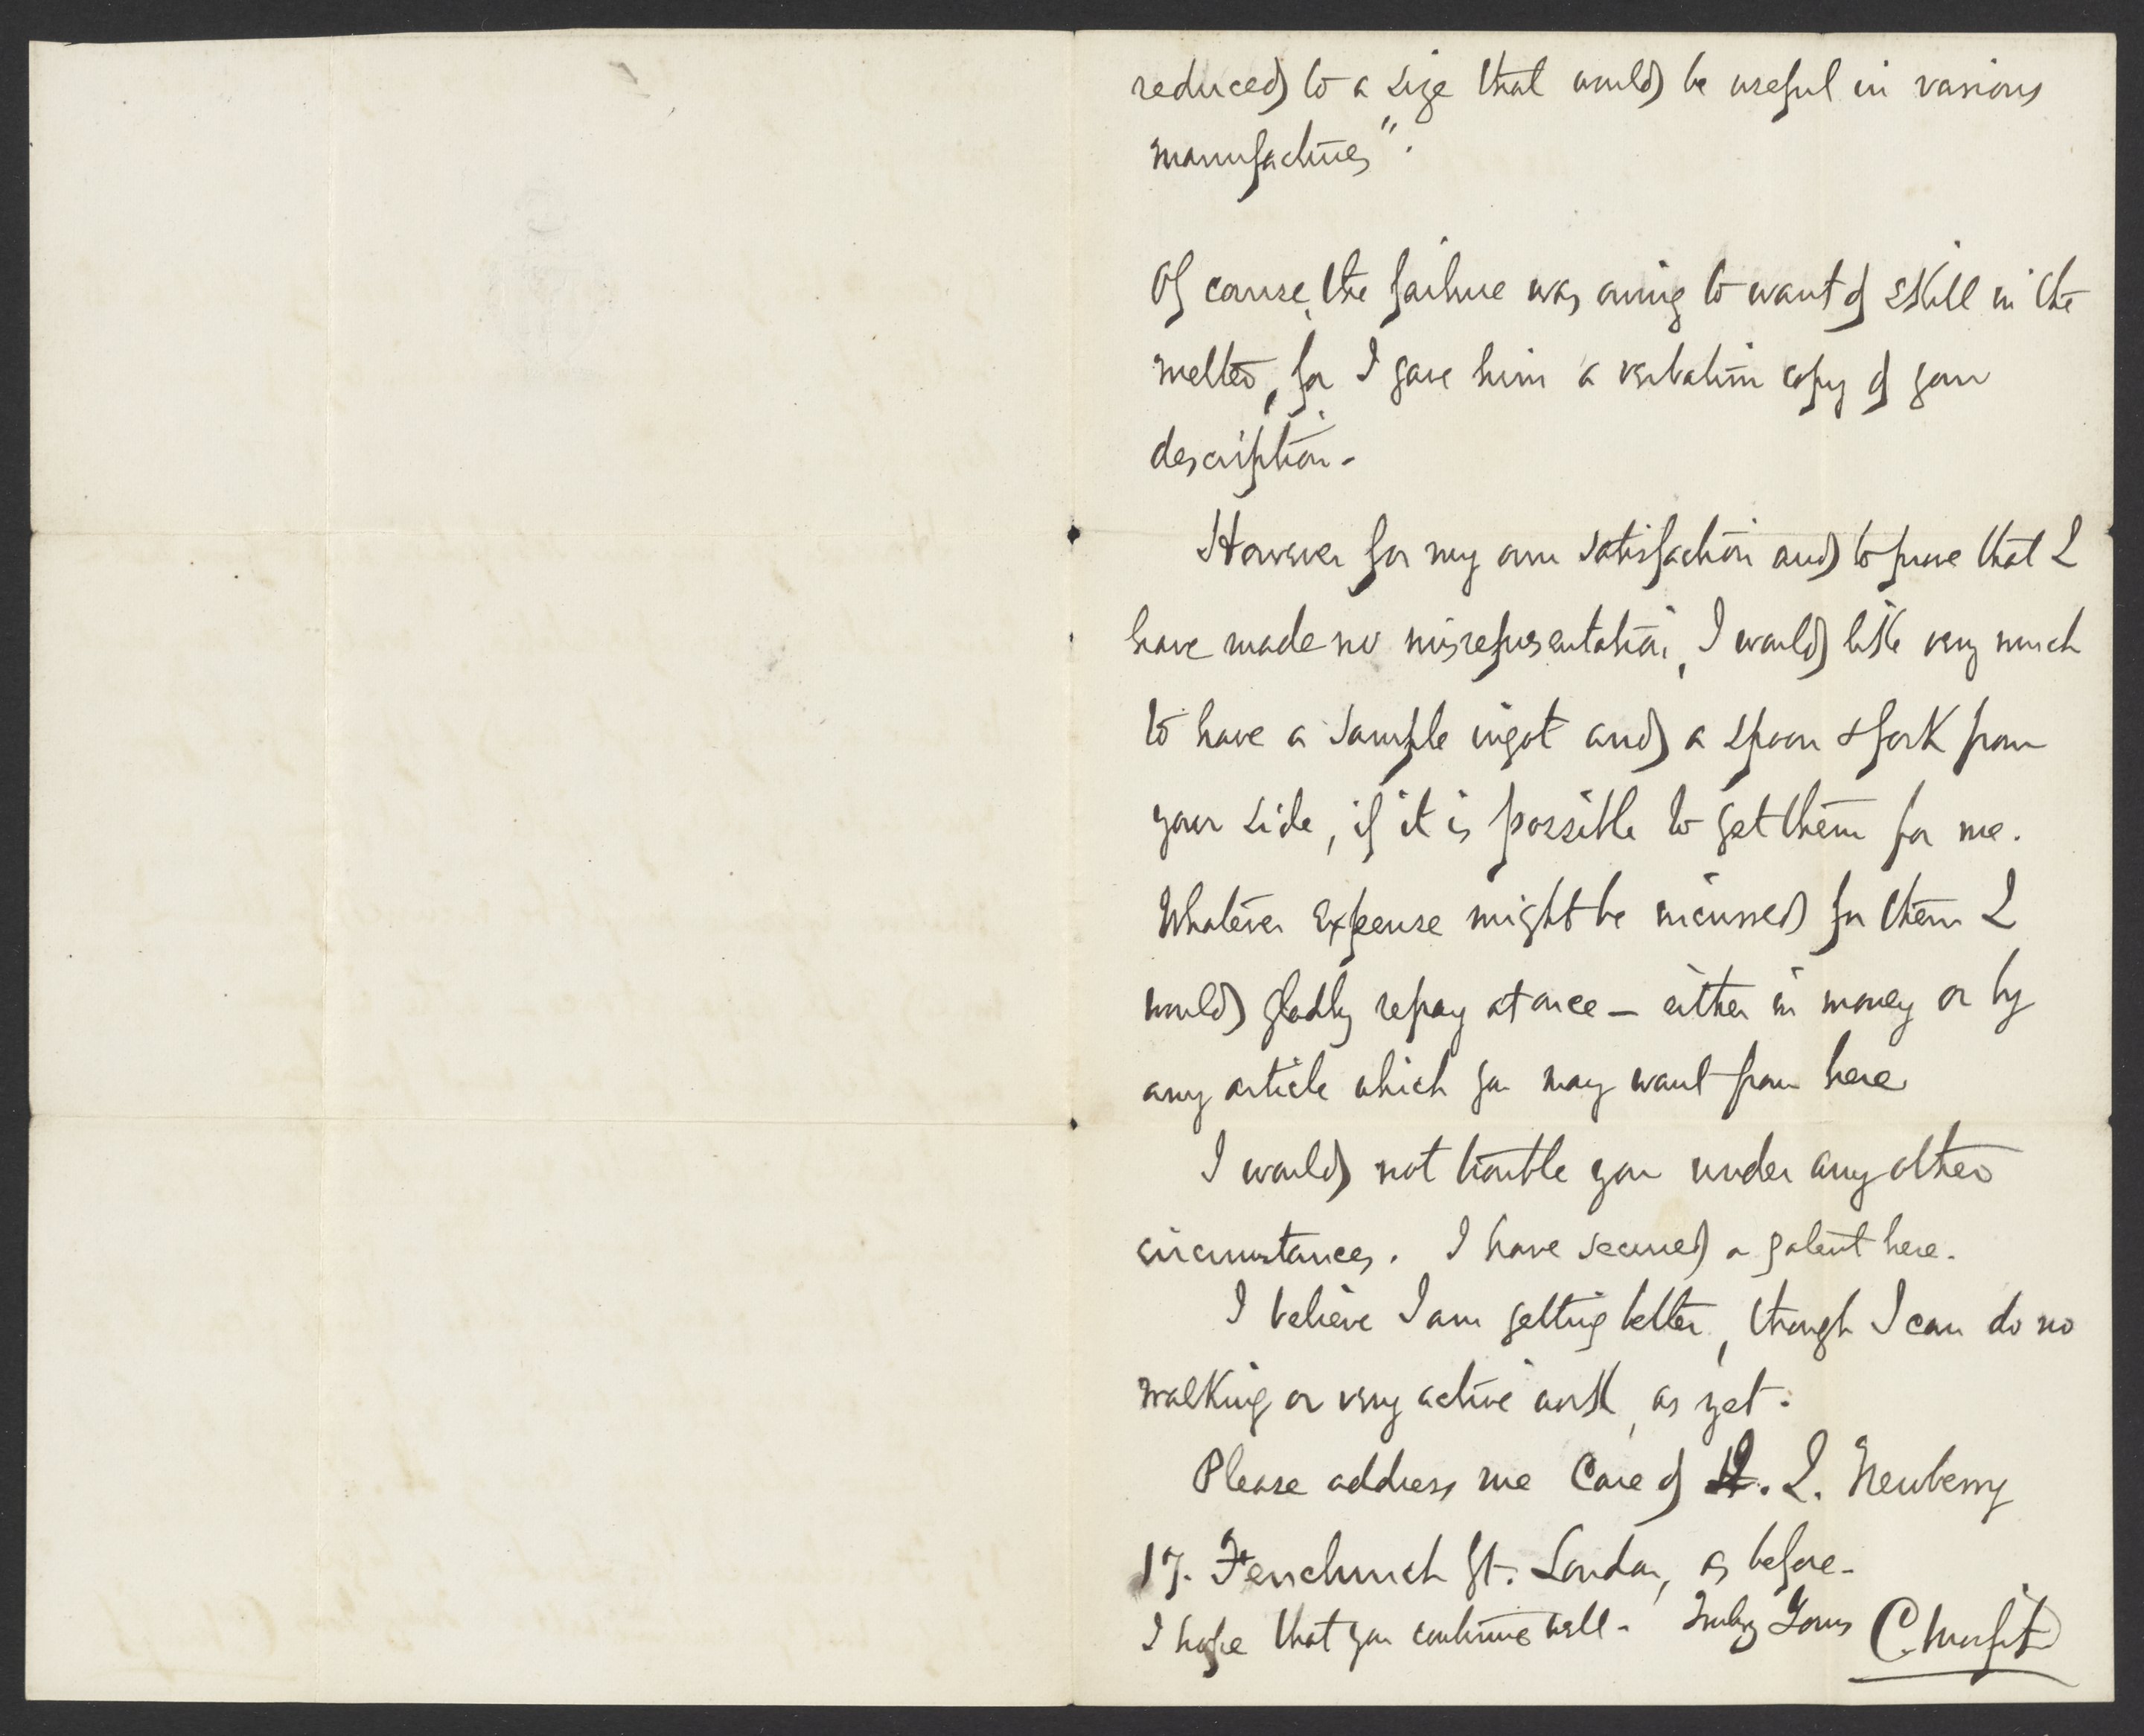 reduced to a size that would be useful in various
manufactures".
Of course, the failure was owing to want of skill in the
melter, for I gave him a verbatim copy of your
description.
However for my own satisfaction and to prove that I
have made no misrepresentation, I would like very much
to have a sample ingot and a spoon & fork from
your side, if it is possible to get them for me.
Whatever expense might be incurred for them I
would gladly repay at once — either in money or by
any article which you may want from here
I would not trouble you under any other
circumstances. I have secured a patent here.
I believe I am getting better, though I can do no
walking or very active work, as yet.
Please address me Care of H. L. Newberry
17. Fenchurch St. London, as before.
I hope that you continue well. Truly Yours C. Morfit